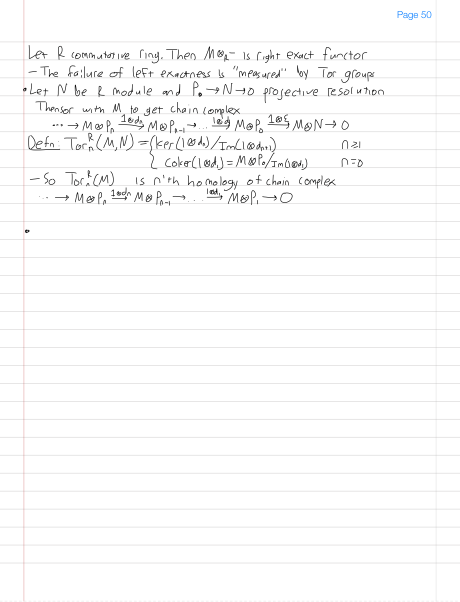 Page 50
Let R commutative ring. Then M⊗_R - is right exact functor
- The failure of left exactness is "measured" by Tor groups
• Let N be R module and P. → N → 0 projective resolution
Thensor with M to get chain complex
... → M⊗P_n --1⊗d_n--> M⊗P_{n-1} → ... --1⊗d_1--> M⊗P_0 --1⊗ε--> M⊗N → 0
Defn: Tor_n^R(M,N) = { ker(1⊗d_n)/Im(1⊗d_{n+1}) n≥1
coker(1⊗d_1) = M⊗P_0/Im(1⊗d_1) n=0
- So Tor_n^R(M) is n'th homology of chain complex
... → M⊗P_n --1⊗d_n--> M⊗P_{n-1} → ... --1⊗d_1--> M⊗P_1 → 0
•